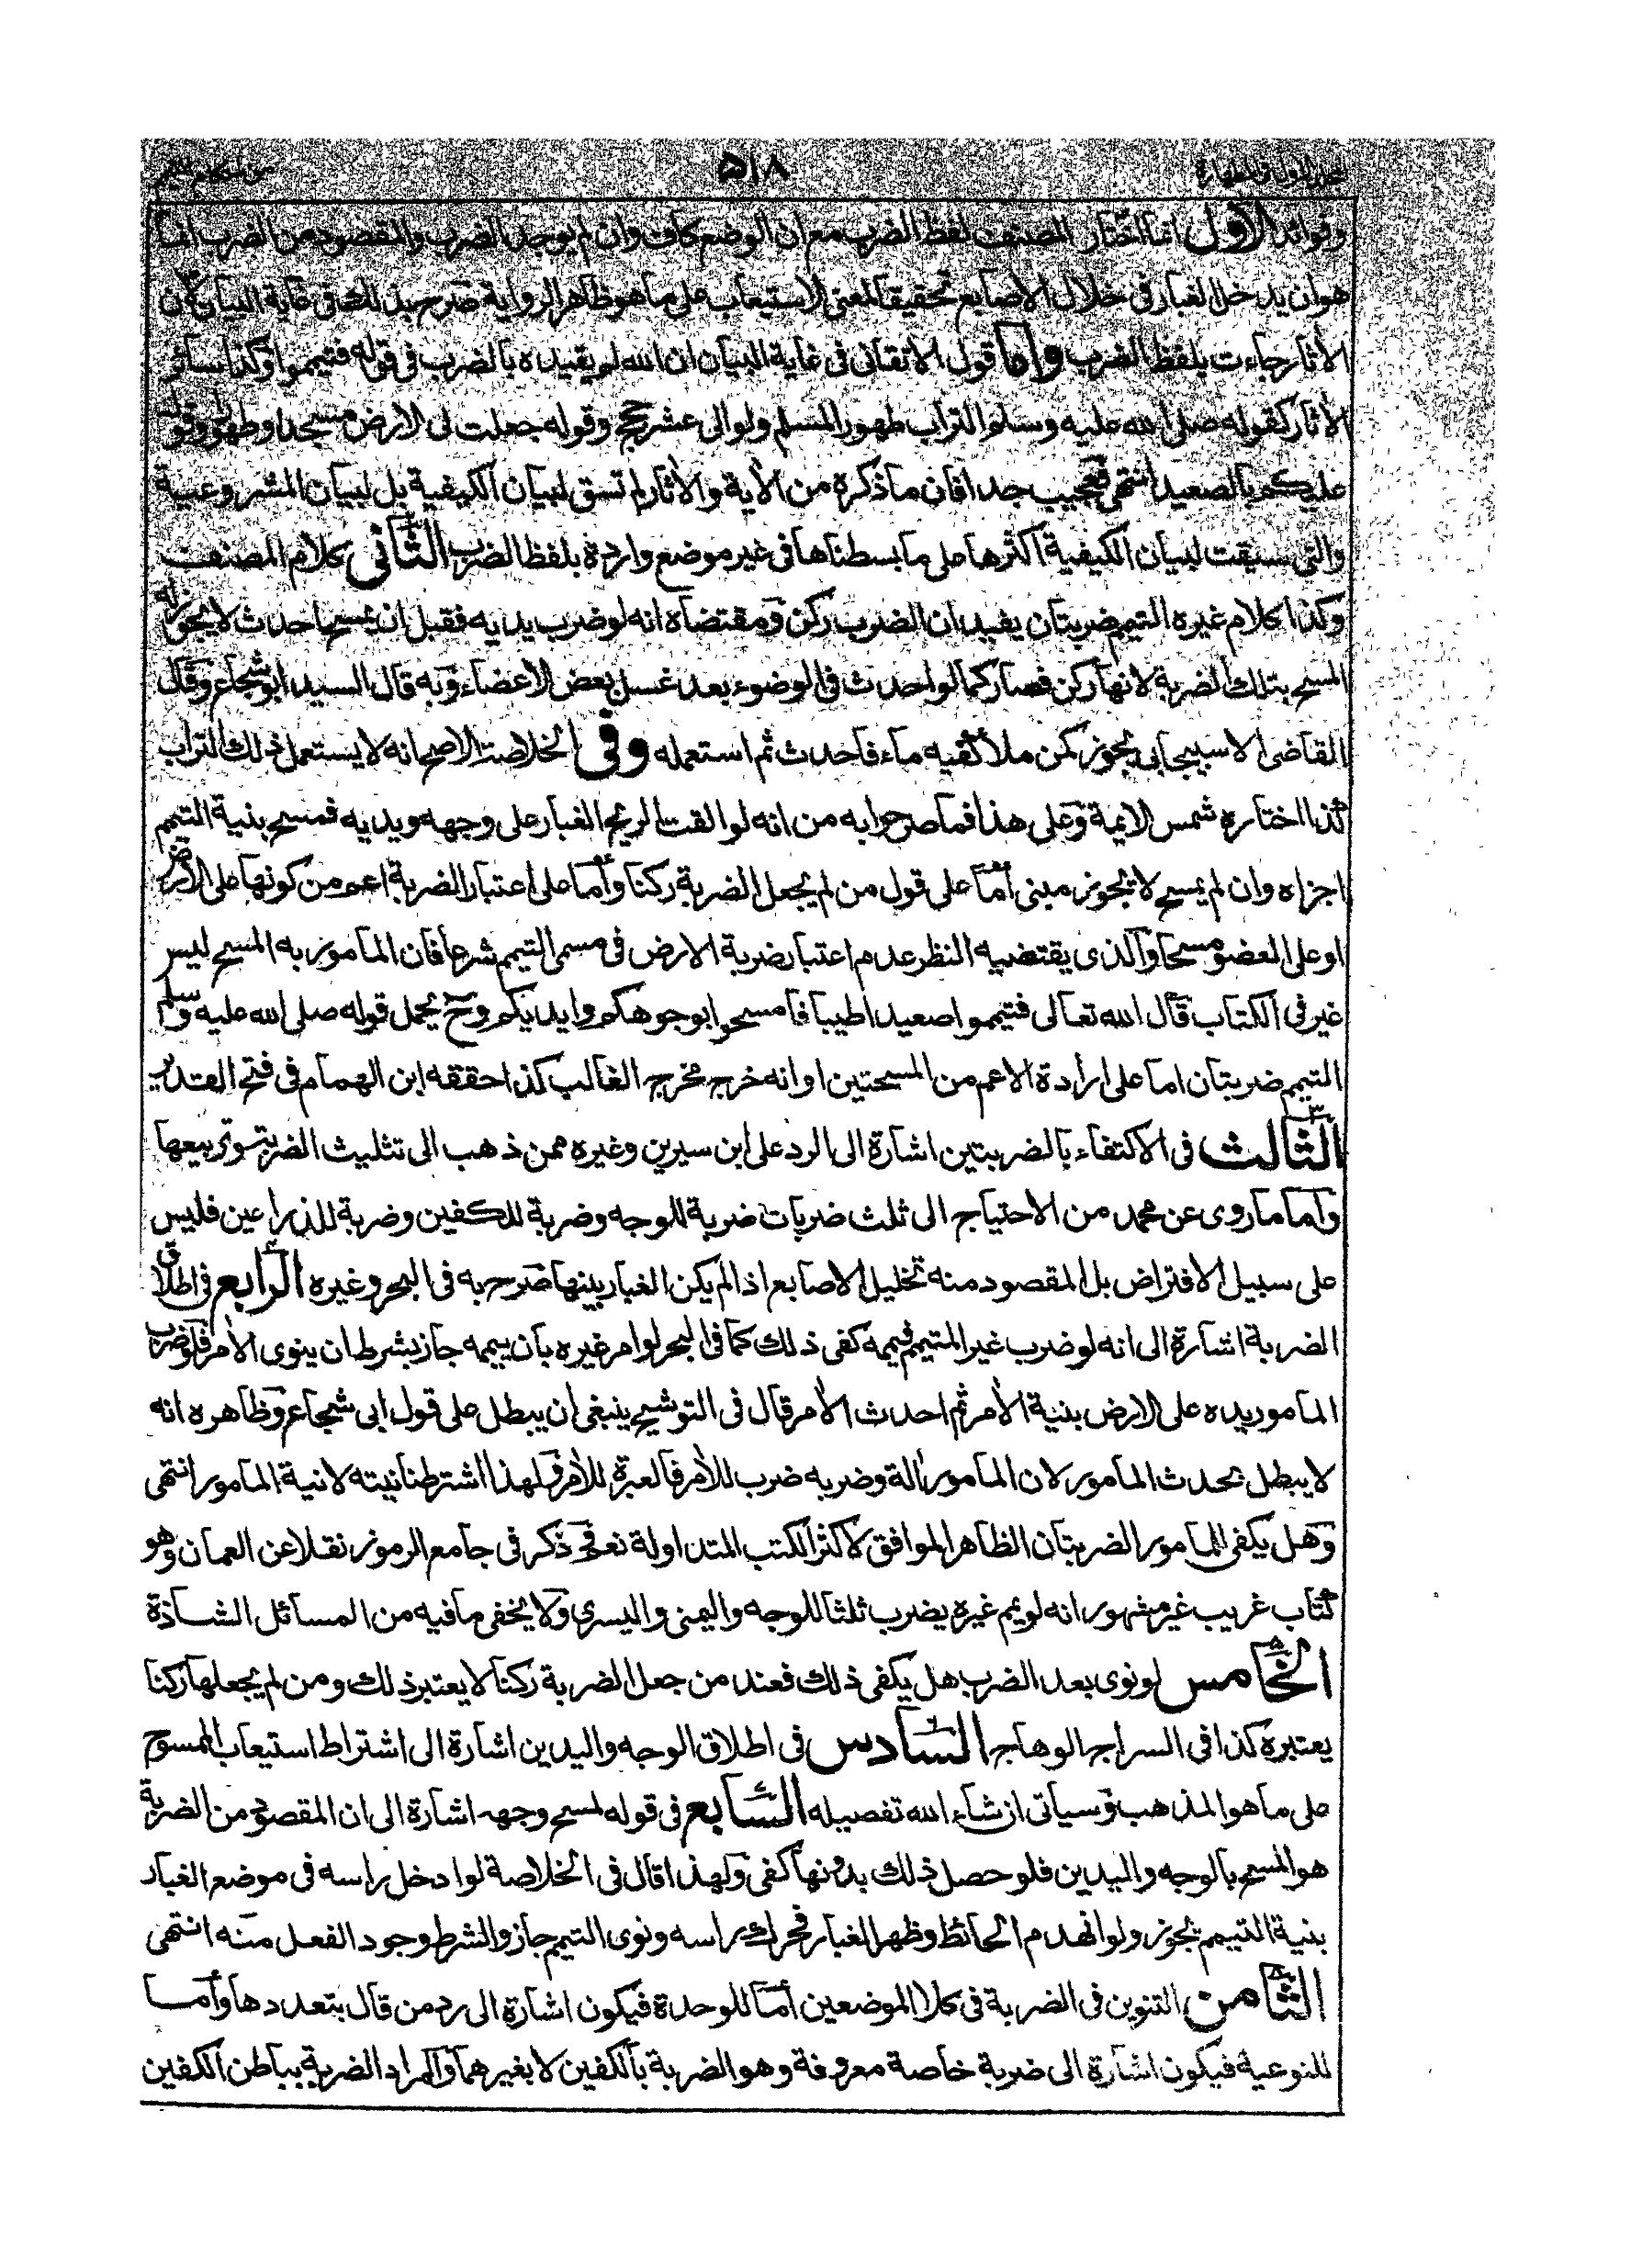 المجلد الاول فى الطهارة ۵۱۸ من احكام التيمم
وفوائد الاول انما اختار المصنف لفظ الضرب مع ان الوضع كاف وان لم يوجد الضرب والمقصود من الضرب انما
هو ان يدخل الغبار فى خلال الاصابع تحقيقا لمعنى الاستيعاب على ما هو ظاهر الرواية صرح بذلك فى غاية البيان لان
الأثار جاءت بلفظ الضرب واما قول الاتقانى فى غاية البيان ان الله لم يقيده بالضرب فى قوله فتيمموا وكذا سائر
الأثار كقوله صلى الله عليه وسلم التراب طهور المسلم ولو الى عشر حجج وقوله جعلت لى الارض مسجدا وطهورا وقوله
عليكم بالصعيد انتهى فعجيب جدا فان ما ذكره من الأية والأثار لم تسق لبيان الكيفية بل لبيان المشروعية
والتى سيقت لبيان الكيفية اكثرها على ما بسطناها فى غير موضع واردة بلفظ الضرب الثانى كلام المصنف
وكذا كلام غيره التيمم ضربتان يفيد ان الضرب ركن ومقتضاه انه لو ضرب يديه فقبل ان يمسح احدث لا يجوز له
المسح بتلك الضربة لانها ركن فصار كما لو احدث فى الوضوء بعد غسل بعض الاعضاء وبه قال السيد ابو شجاع وقال
القاضى الاسبيجابى يجوز كمن ملأ كفيه ماء فاحدث ثم استعمله وفى الخلاصة الاصح انه لا يستعمل ذلك التراب
كذا اختاره شمس الايمة وعلى هذا فما صرحوا به من انه لو القت الريح الغبار على وجهه ويديه فمسح بنية التيمم
اجزاه وان لم يمسح لا يجوز مبنى اما على قول من لم يجعل الضربة ركنا واما على اعتبار الضربة اعم من كونها على الارض
او على العضو مسحا والذى يقتضيه النظر عدم اعتبار ضربة الارض فى مسمى التيمم شرعا فان المامور به المسح ليس
غير فى الكتاب قال الله تعالى فتيمموا صعيدا طيبا فامسحوا بوجوهكم وايديكم وح يحمل قوله صلى الله عليه وسلم
التيمم ضربتان اما على ارادة الاعم من المسحتين او انه خرج مخرج الغالب كذا حققه ابن الهمام فى فتح القدير
الثالث فى الاكتفاء بالضربتين اشارة الى الرد على ابن سيرين وغيره ممن ذهب الى تثليث الضربة وتربيعها
واما ما روى عن محمد من الاحتياج الى ثلث ضربات ضربة للوجه وضربة للكفين وضربة للذراعين فليس
على سبيل الافتراض بل المقصود منه تخليل الاصابع اذا لم يكن الغبار بينها صرح به فى البحر وغيره الرابع فى اطلاق
الضربة اشارة الى انه لو ضرب غير المتيمم فيممه كفى ذلك كما فى البحر لو امر غيره بان ييممه جاز بشرط ان ينوى الأمر فلو ضرب
المامور يده على الارض بنية الأمر ثم احدث الأمر قال فى التوشيح ينبغى ان يبطل على قول ابى شجاع وظاهره انه
لا يبطل بحدث المامور لان المامور ألة وضربه ضرب للأمر فالعبرة للأمر ولهذا اشترطنا نيته لا نية المامور انتهى
وهل يكفى للمامور الضربتان الظاهر الموافق لاكثر الكتب المتداولة نعم وح ذكر فى جامع الرموز نقلا عن العمان وهو
كتاب غريب غير مشهور انه لو يمم غيره يضرب ثلثا للوجه واليمنى واليسرى ولا يخفى ما فيه من المسائل الشاذة
الخامس لو نوى بعد الضرب هل يكفى ذلك فعند من جعل الضربة ركنا لا يعتبر ذلك ومن لم يجعلها ركنا
يعتبره كذا فى السراج الوهاج السادس فى اطلاق الوجه واليدين اشارة الى اشتراط استيعاب الممسوح
على ما هو المذهب وسياتى ان شاء الله تفصيله السابع فى قوله لمسح وجهه اشارة الى ان المقصود من الضربة
هو المسح بالوجه واليدين فلو حصل ذلك بدونها كفى ولهذا قال فى الخلاصة لو ادخل راسه فى موضع الغبار
بنية التيمم يجوز ولو انهدم الحائط وظهر الغبار فحرك راسه ونوى التيمم جاز والشرط وجود الفعل منه انتهى
الثامن التنوين فى الضربة فى كلا الموضعين اما للوحدة فيكون اشارة الى رد من قال بتعددها واما
للنوعية فيكون اشارة الى ضربة خاصة معروفة وهو الضربة بالكفين لا بغيرهما والمراد الضربة بباطن الكفين